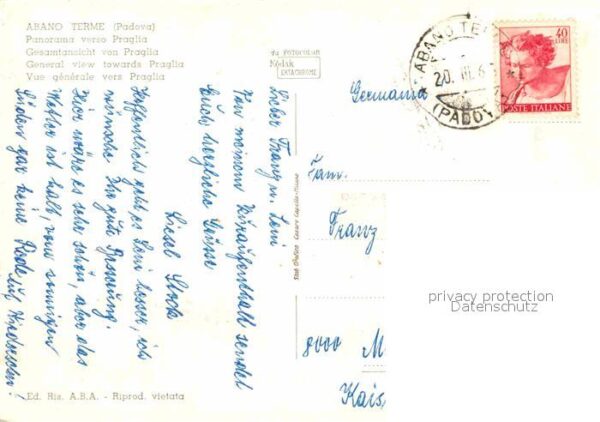 ABANO TERME (Padova)
Panorama verso Praglia
Gesamtansicht von Praglia
General view towards Praglia
Vue générale vers Praglia
da FOTOCOLOR
Kodak
EKTACHROME
ABANO TE
20. III. 6
(PADOV
40
LIRE
POSTE ITALIANE
Germania
Fam.
Franz
8000 M
Kais
privacy protection
Datenschutz
Lieber Franz u. Leni
Von meinem Kuraufenthalt sendet
Euch herzliche Grüsse
Liesl
Hoffentlich geht es Leni besser, ich
wünsche Ihr gute Besserung.
Hier wäre es sehr schön, aber das
Wetter ist kalt, vom sonnigen
Süden gar keine Rede
Auf Wiedersehn!
Ed. Ris. A.B.A. - Riprod. vietata